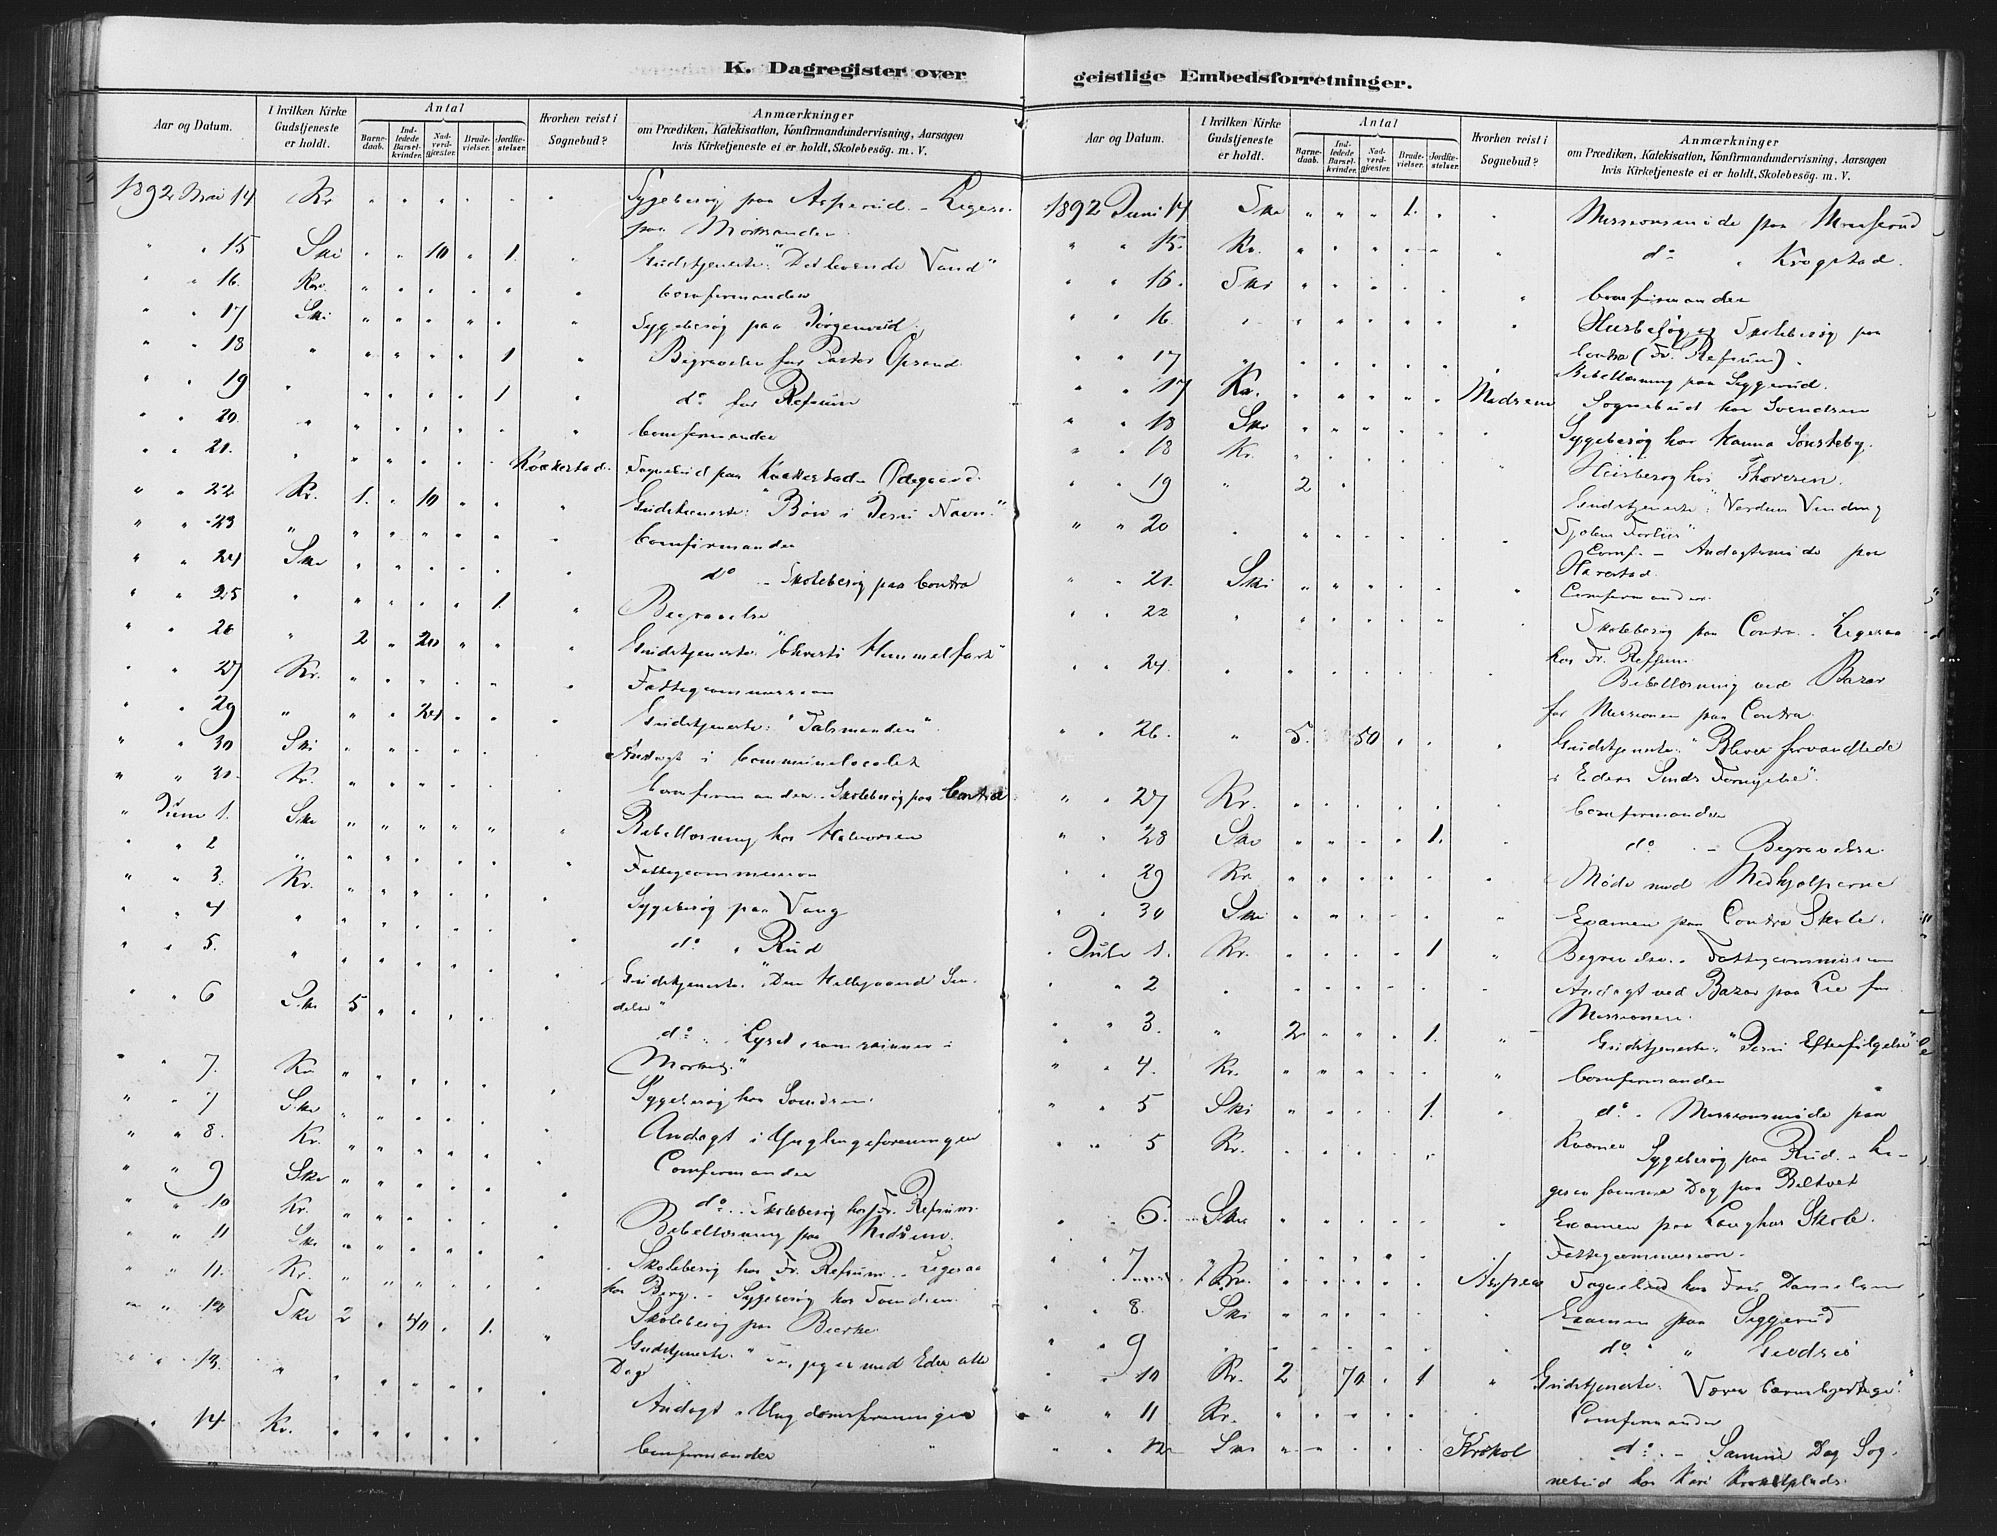 K. Dagregister over
Aar og Datum.
I hvilken Kirke Gudstjeneste er holdt.
Antal
Barne-daab.
Ind-ledede Barsel-kvinder.
Nad-verd-gjæster.
Brude-vielser.
Jordfæ-stelser.
Hvorhen reist i Sognebud?
Anmærkninger
om Prædiken, Katekisation, Konfirmandundervisning, Aarsagen
hvis Kirketjeneste ei er holdt, Skolebesøg. m. V.
1892 Mai 14 Kr. Sygebesøg paa Asperud - Ligesaa
paa
" " 15 Ski " " 10 " 1. " Gudstjeneste: "Det levende Vand"
" " 16. Kr. Comfirmander
" " 17 Ski Sygebesøg paa
" " 18 " 1 Begravelse for Pastor Opsand
" " 19 " 1 do for Refsum
" " 20. " Comfirmander
" " 21. " Kakkestad. Sognebud paa Kakkestad - Ødegaard.
" " 22 Kr. 1. " 10 Gudstjeneste: "Bøn i Jesu Navn."
" " 23 " Comfirmander
" " 24 Ski do - Skolebesøg paa Contra
" " 25 " 1. Begravelse
" " 26 " 2 " 20 Gudstjeneste: "Christi Himmelfart"
" " 27 Kr. Fattigcommission
" " 29 " Gudstjeneste: "Talsmanden"
" " 30 Ski Andagt i Communelocalet
" " 31. Kr. Comfirmander. Skolebesøg paa Contra
" Juni 1. Ski Bibellæsning hos Halvorsen
" " 2 " Fattigcommission
" " 3. Kr. Sygebesøg paa Vang
" " 4 " do " Rud
" " 5. " Gudstjeneste: "Den Helligaand Sen-
delse"
" " 6 Ski 5 do "Lyset, som skinner i
Mørket."
" " 7. Kr. Sygebesøg hos Svendsen.
" " 7 Ski Andagt i Ynglingeforeningen
" " 8. Kr. Comfirmander
" " 9 Ski do - Skolebesøg hos Fr. Refsum.
" " 10 Kr. Bibellæsning paa
" " 11 Ski Skolebesøg hos Fr. Refsum - Ligesaa
" " 11. Kr. hos Berg. - Sygebesøg hos Svendsen.
" " 12 Ski 2 " 40 " 1. Skolebesøg paa
" " 13. " Gudstjeneste: " jeg er med Eder alle
Dage
" " 14 Kr. Andagt i Ungdomsforeningen
Comfirmander
geistlige Embedsforretninger.
Aar og Datum.
I hvilken Kirke Gudstjeneste er holdt.
Antal
Barne-daab.
Ind-ledede Barsel-kvinder.
Nad-verd-gjæster.
Brude-vielser.
Jordfæ-stelser.
Hvorhen reist i Sognebud?
Anmærkninger
om Prædiken, Katekisation, Konfirmandundervisning, Aarsagen
hvis Kirketjeneste ei er holdt, Skolebesøg. m. V.
1892 Juni 14 Ski " " " 1. Missionsmøde paa
" " 15. Kr. do " Krogstad.
" " 16. Ski Comfirmander
" " 16 " Husbesøg og Skolebesøg paa
" " 17 " Contra (Fr. Refsum).
Bibellæsning paa Siggerud.
" " 17 Kr. Madsem Sognebud hos Svendsen
" " 18 Ski Sygebesøg hos Hanna Sønsteby.
" " 18 Kr. Husbesøg hos Thoresen.
" " 19 " 2 Gudstjeneste: "Verdens Vinding
" " 20 " Sjælens Forliis"
Comf. - Andagtsmøde paa
Harestad
" " 21. Ski Comfirmander.
" " 22 " Skolebesøg paa Contra. Ligesaa
hos Fr. Refsum
" " 24. " Bibellæsning ved Bazar
for Missionen paa Contra
" " 26. " 5. 50 Gudstjeneste: "Bliver forvandlede
i Eders Sinds Fornyelse".
" " 27 Kr. Comfirmander
" " 28 Ski 1. do. - Begravelse.
" " 29 Kr. Møde med Medhjælperne
" " 30 Ski Examen paa Contra Skole.
" Juli 1. Kr. 1 Begravelse. Fattigcommission
" " 2 " Andagt ved Bazar paa Lie for
Missionen.
" " 3. " 2 1. Gudstjeneste: "Jesu Efterfølgelse"
" " 4. Kr. Comfirmander
" " 5 Ski 1. do. Missionsmøde paa
" " 5 Kr. Sygebesøg paa Rud. - Li-
gesaa samme Dag paa Biltvet
" " 6. Ski Examen paa Langhus Skole.
Fattigcommission.
" " 7 Kr. Sognebud hos
" " 8. Ski Examen paa Siggerud
" " 9 " do "
" " 10 Kr. 2 70 " 1 Gudstjeneste: Værer barmhjertige!"
" " 11 Kr. Comfirmander
" " 12 Ski Kråkol do. - Samme Dag Sog-
nebud hos Kari